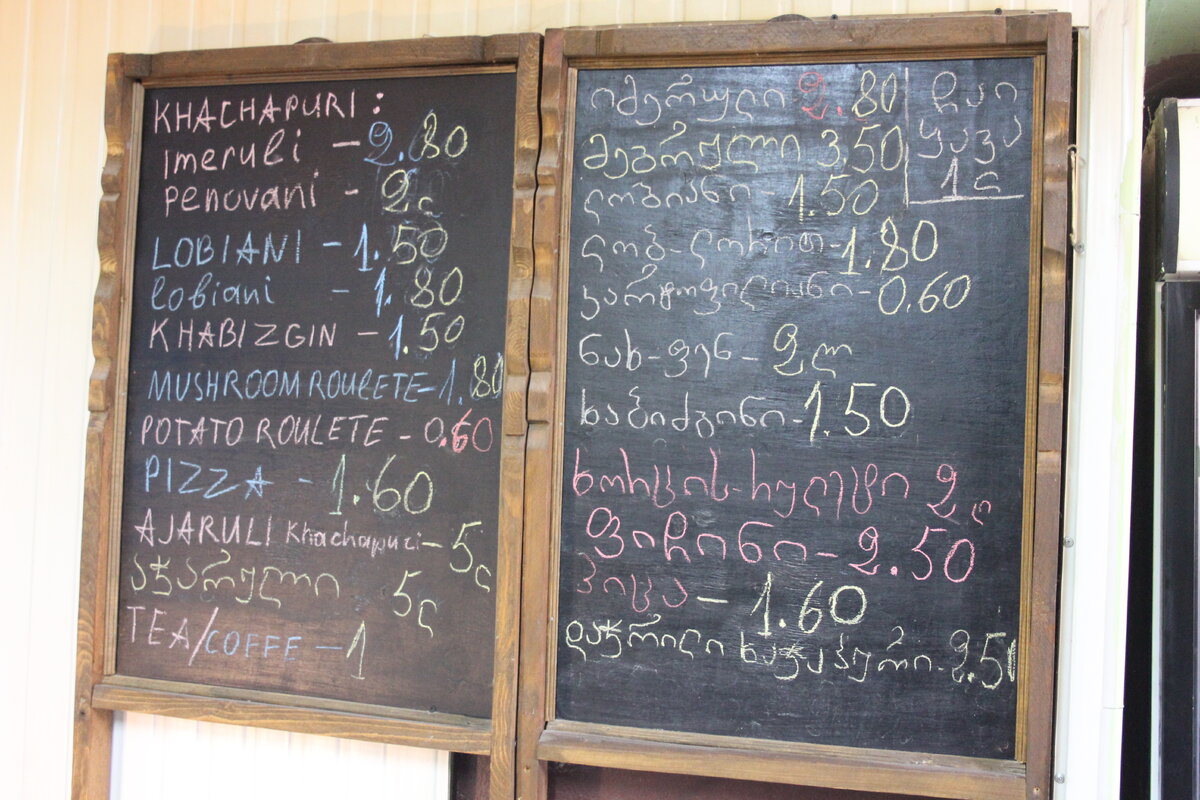 KHACHAPURI:
Imeruli - 2.80
Penovani - 2ლ
LOBIANI - 1.50
lobiani - 1.80
KHABIZGIN - 1.50
MUSHROOM ROULETE - 1.80
POTATO ROULETE - 0.60
PIZZA - 1.60
AJARULI Khachapuri - 5ლ
აჭარული 5ლ
TEA/COFFE - 1
იმერული 2.80
მეგრული 3.50
ლობიანი - 1.50
ლობ-ლორით - 1.80
კარტოფილიანი - 0.60
ნახ-ფენ - 2ლ
ხაბიძგინი - 1.50
ხორცის-რულეტი 2ლ
ფიჩინი - 2.50
პიცა - 1.60
დაჭრილი ხაჭაპური - 2.50
ჩაი
ყავა
1ლ